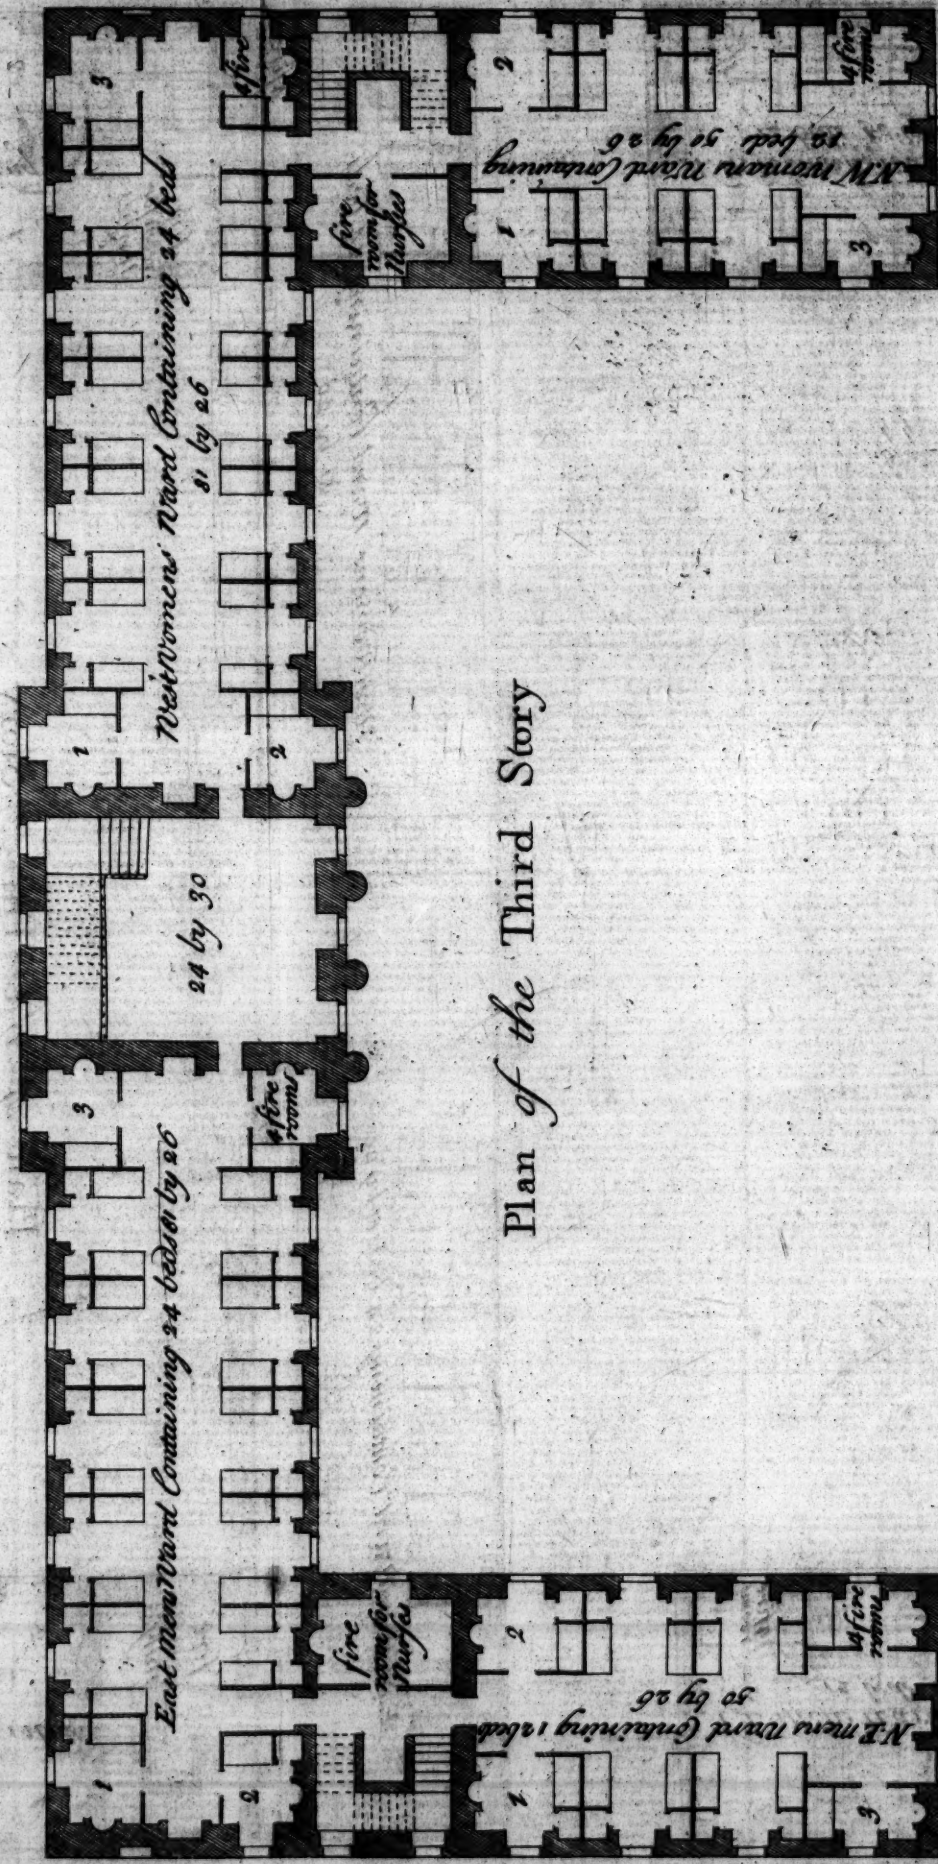 Plan of the Third Story
East Men Ward Containing 24 beds 81 by 26
1
2
3
4 fire
rooms
24 by 30
West Womens Ward Containing 24 beds
81 by 26
1
2
3
4 fire
fire
room for
Nurses
N.E mens Ward Containing 12 beds
50 by 26
1
2
3
4 fire
rooms
fire
room for
Nurses
N.W Womans Ward Containing
12 beds 50 by 26
1
2
3
4 fire
rooms